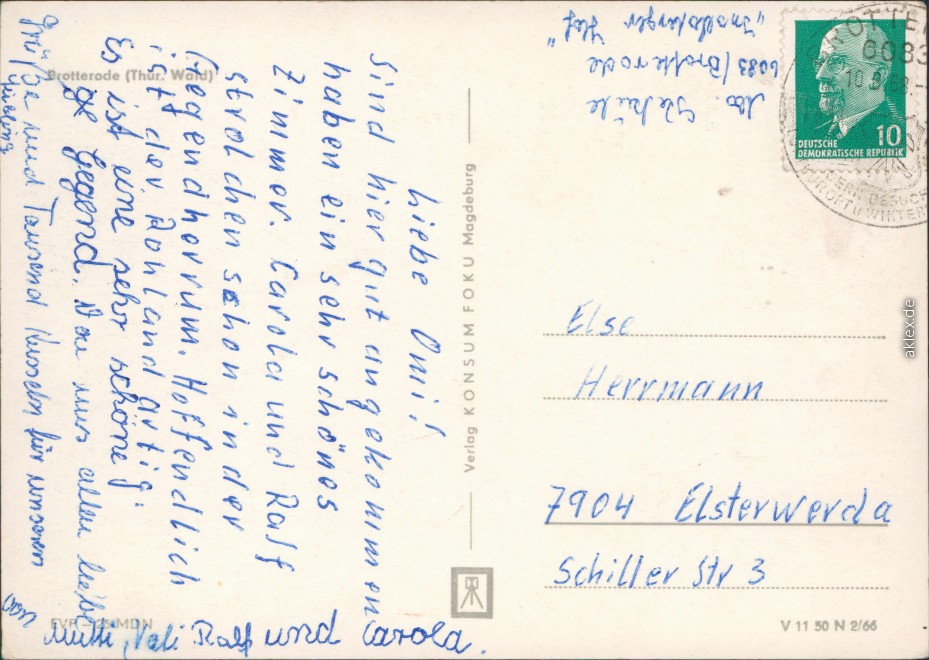 Brotterode (Thür. Wald)
Liebe Omi!
Sind hier gut angekommen
haben ein sehr schönes
Zimmer. Carola und Ralf
strolchen schon in der
Gegend herum. Hoffendlich
ist der Rohland artig.
Es ist eine sehr schöne
Gegend. Von uns allen liebe
Grüße und Tausend Küsschen für unseren
Liebling
von
Mutti, Vati Ralf und Carola.
EVP – 25 MDN
Verlag KONSUM FOKU Magdeburg
Abs.
6083 Brotterode
"Inselsberger Hof"
BROTTE
6083
10
KURORT U WINTER
10
DEUTSCHE
DEMOKRATISCHE REPUBLIK
Else
Herrmann
7904 Elsterwerda
Schiller Str 3
V 11 50 N 2/66
aklex.de